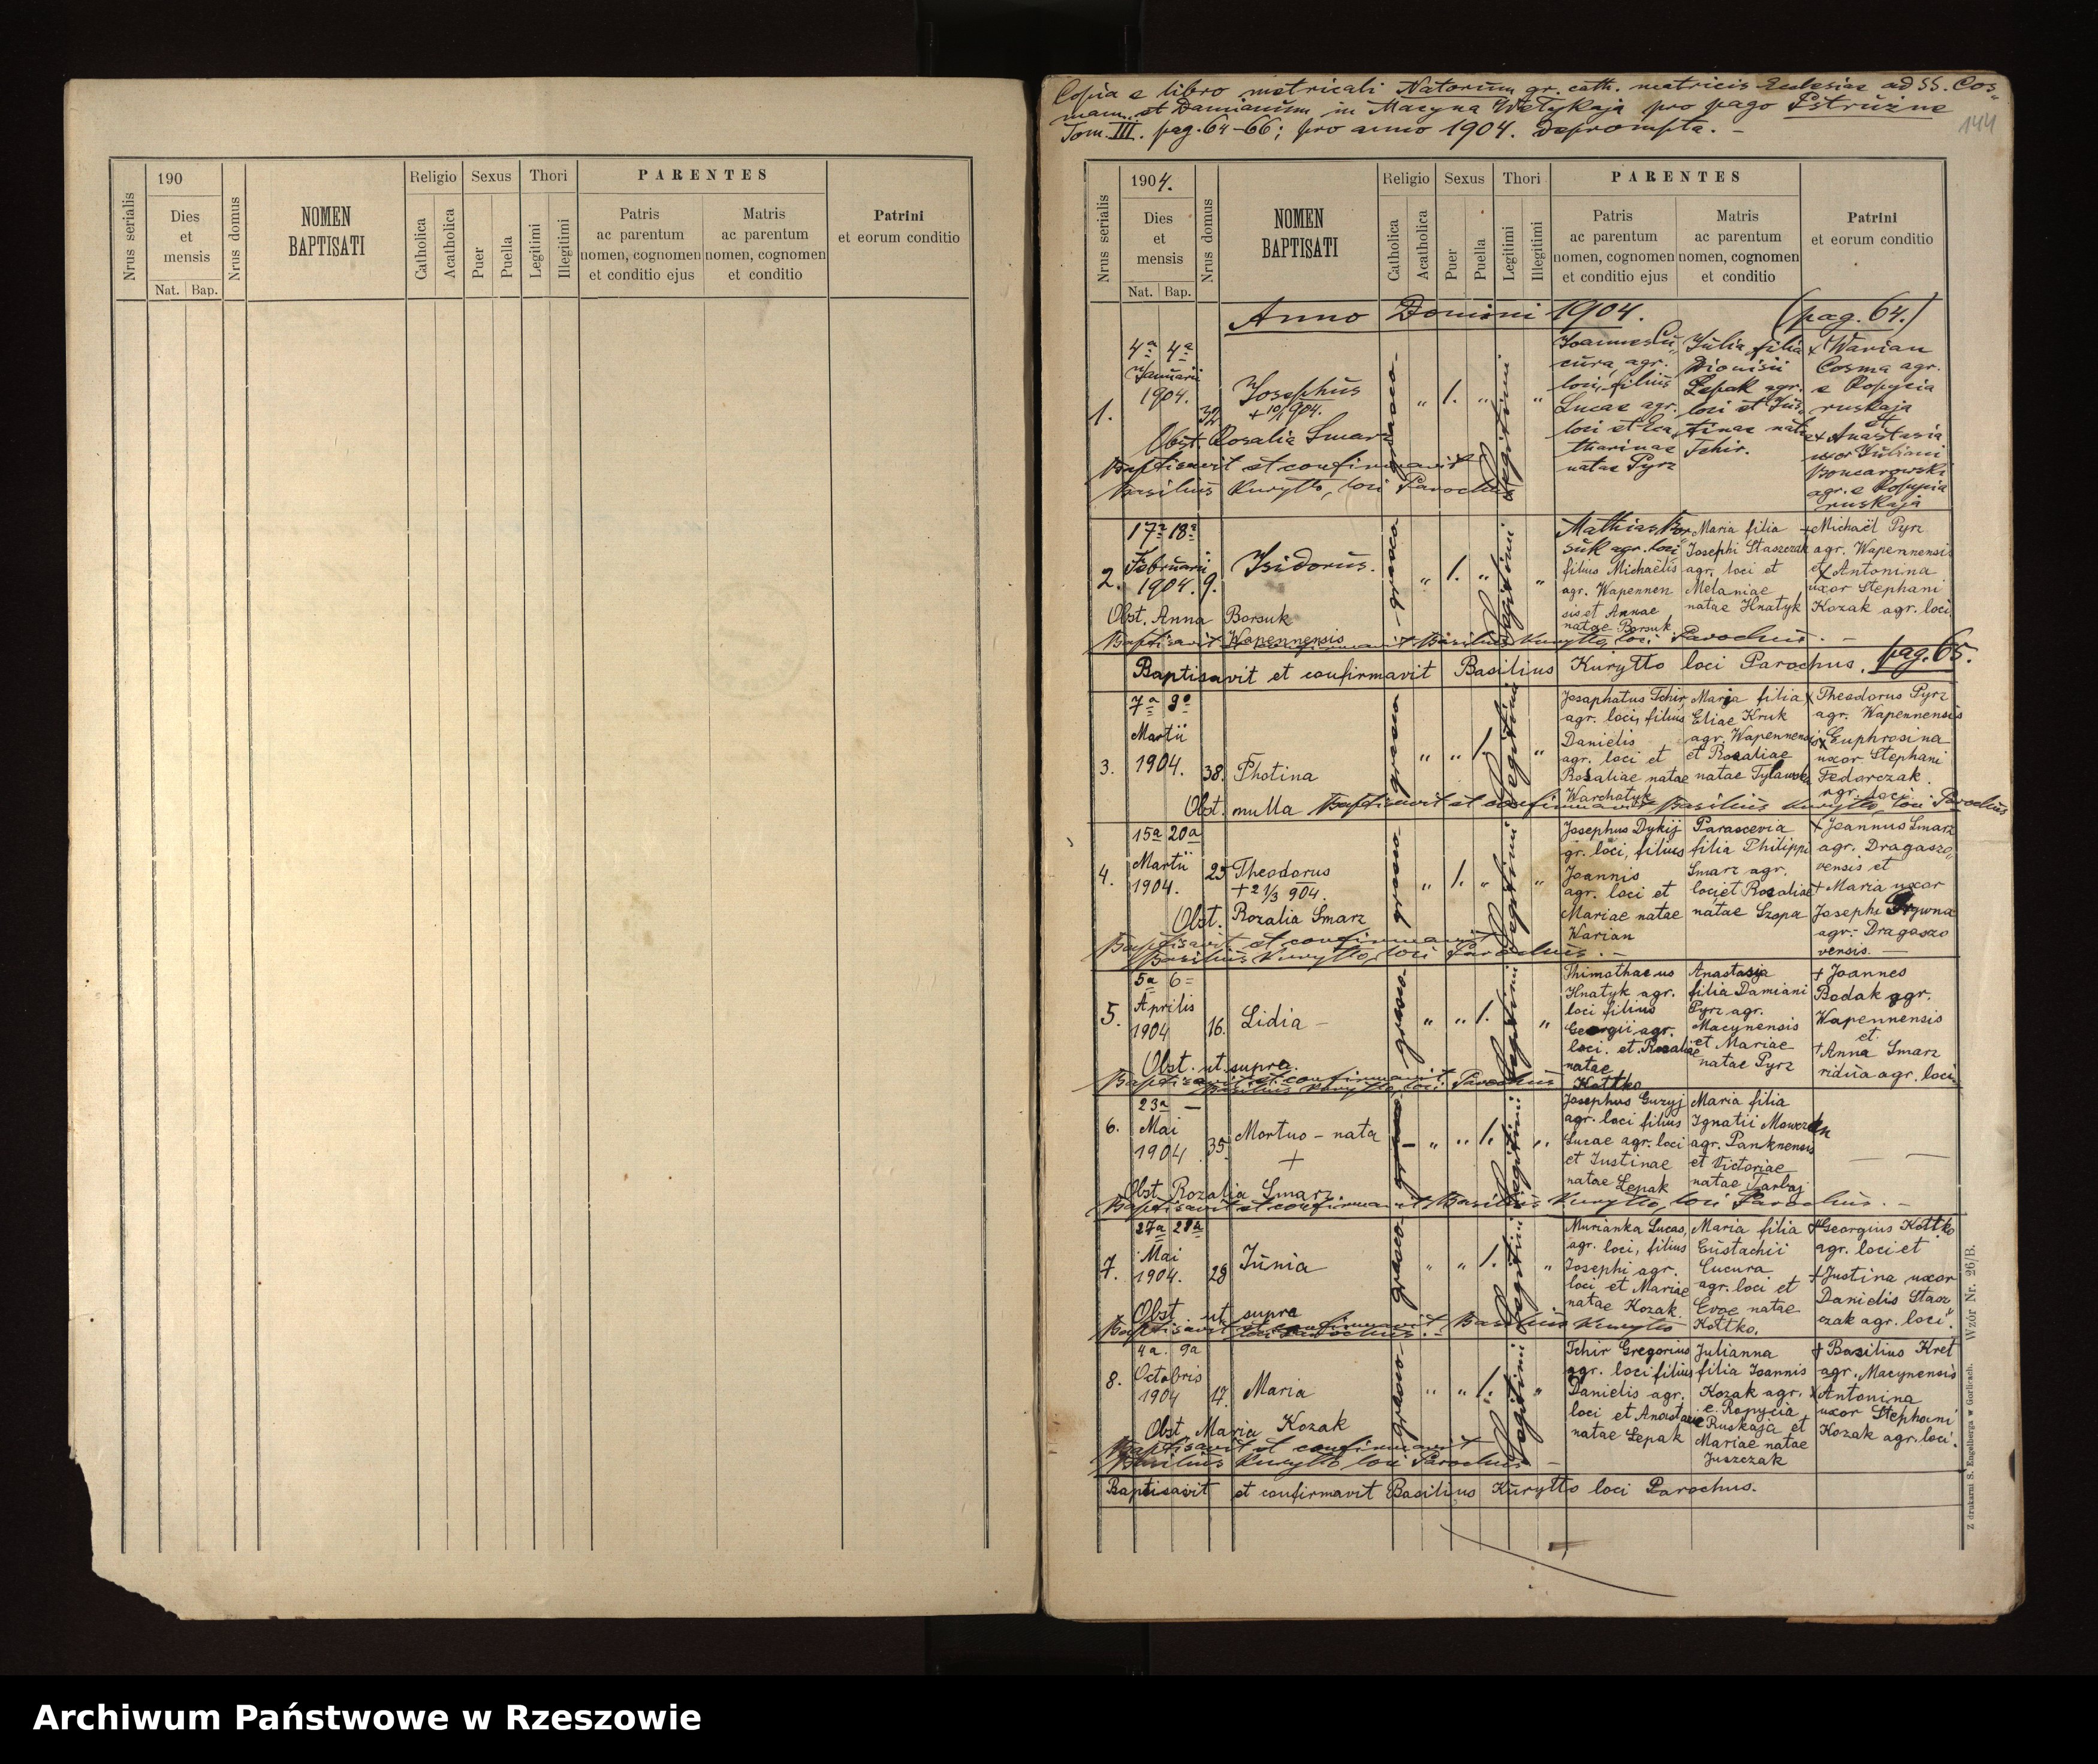 Nrus serialis
190
Dies
et
mensis
Nat. Bap.
Nrus domus
NOMEN
BAPTISATI
Religio
Catholica
Acatholica
Sexus
Puer
Puella
Thori
Legitimi
Illegitimi
PARENTES
Patris
ac parentum
nomen, cognomen
et conditio ejus
Matris
ac parentum
nomen, cognomen
et conditio
Patrini
et eorum conditio
Copia e libro metricali Natorum gr. cath. matricis Eclesiae ad SS. Cos-
mam et Damianum in Macyna Wełykaja pro pago Pstrużne
Tom. III. pag. 64-66; pro anno 1904. deprompta. -
144
Nrus serialis
1904.
Dies
et
mensis
Nat. Bap.
Nrus domus
NOMEN
BAPTISATI
Religio
Catholica
Acatholica
Sexus
Puer
Puella
Thori
Legitimi
Illegitimi
PARENTES
Patris
ac parentum
nomen, cognomen
et conditio ejus
Matris
ac parentum
nomen, cognomen
et conditio
Patrini
et eorum conditio
Anno Domini 1904. (pag. 64.)
1.
4a 4a
Januarii
1904.
32
Josephus
+ 10/1 904.
Obst. Rosalia Smarz
Baptisavit et confirmavit
Basilius Kuryłło, loci Parochus
graeco
" 1. " Legitimi "
Joannes Cu-
cura, agr.
loci, filius
Lucae agr.
loci et Eca-
tharinae
natae Pyrz
Julia filia
Dionisii
Lepak agr.
loci et Jus-
tinae nata
Tchir.
+ Warian
Cosma agr.
e Ropycia
ruskaja
et
+ Anastasia
uxor Juliani
agr. e Ropycia
ruskaja
2.
17a 18a
Februarii
1904.
9.
Isidorus.
Obst. Anna Borsuk
Wapennensis
Baptisavit et confirmavit Basilius Kuryłło, loci Parochus. -
graeco
" 1. " Legitimi "
Mathias Bor-
suk agr. loci
filius Michaëlis
agr. Wapennen
sis et Annae
natae Borsuk
Maria filia
Josephi Staszczak
agr. loci et
Melaniae
natae Hnatyk
+ Michaël Pyrz
agr. Wapennensis
et Antonina
uxor Stephani
Kozak agr. loci
Baptisavit et confirmavit Basilius Kuryłło loci Parochus. pag. 65.
3.
7a 8a
Martii
1904.
38.
Photina
Obst. nulla Baptisavit et confirmavit Basilius Kuryłło, loci Parochus
graeco
" " 1. Legitimi "
Josaphatus Tchir
agr. loci, filius
Danielis
agr. loci et
Rosaliae natae
Warchatyk
Maria filia
Eliae Kruk
agr. Wapennensis
et Rosaliae
natae Tylawska
x Theodorus Pyrz
agr. Wapennensis
x Euphrosina
uxor Stephani
Fedorczak
agr. loci
4.
15a 20a
Martii
1904.
25
Theodorus
+ 21/3 904.
Obst. Rozalia Smarz
Baptisavit et confirmavit
Basilius Kuryłło, loci Parochus. -
graeco
" 1. " Legitimi "
Josephus Dykij
gr. loci, filius
Joannis
agr. loci et
Mariae natae
Warian
Parascevia
filia Philippi
Smarz agr.
loci et Rozaliae
natae Szopa
+ Joannus Smarz
agr. Dragaszo-
vensis et
+ Maria uxor
Josephi Hrywna
agr. Dragaszo
vensis. —
5.
5a 6=
Aprilis
1904
16.
Lidia -
Obst. ut supra.
Baptisavit et confirmavit
Basilius Kuryłło, loci Parochus
graeco
" " 1. Legitimi "
Thimothaeus
Hnatyk agr.
loci filius
Georgii agr.
loci. et Rozaliae
natae
Kottko
Anastasia
filia Damiani
Pyrz agr.
Macynensis
et Mariae
natae Pyrz
+ Joannes
Bodak agr.
Wapennensis
et
+ Anna Smarz
vidua agr. loci
6.
23a —
Mai
1904
35
Mortuo - nata
+
Obst. Rozalia Smarz
Baptisavit et confirmavit Basilius Kuryłło, loci Parochus. -
" " 1. Legitimi "
Josephus Guzyj
agr. loci filius
Lucae agr. loci
et Justinae
natae Lepak
Maria filia
agr. Panknensis
et Victoriae
natae Tarbaj
— —
7.
27a 28a
Mai
1904.
28
Junia
Obst. ut supra
Baptisavit et confirmavit Basilius Kuryłło
loci Parochus. -
graeco
" " 1. Legitimi "
Murianka Lucas,
agr. loci, filius
Josephi agr.
loci et Mariae
natae Kozak
Maria filia
Eustachii
Cucura
agr. loci et
Evae natae
Kottko.
+ Georgius Kottko
agr. loci et
+ Justina uxor
Danielis Stasz
czak agr. loci.
8.
4a. 9a
Octobris
1904
17.
Maria
Obst. Maria Kozak
Baptisavit et confirmavit
Basilius Kuryłło loci Parochus -
graeco
" " 1. Legitimi "
Tchir Gregorius
agr. loci filius
Danielis agr.
loci et Anastasiae
natae Lepak
Julianna
filia Joannis
Kozak agr.
e Ropycia
Ruskaja et
Mariae natae
Juszczak
+ Basilius Kret
agr. Macynensis
x Antonina
uxor Stephani
Kozak agr. loci.
Baptisavit et confirmavit Basilius Kuryłło loci Parochus.
Z drukarni S. Engelberga w Gorlicach. Wzór Nr. 26/B.
Archiwum Państwowe w Rzeszowie